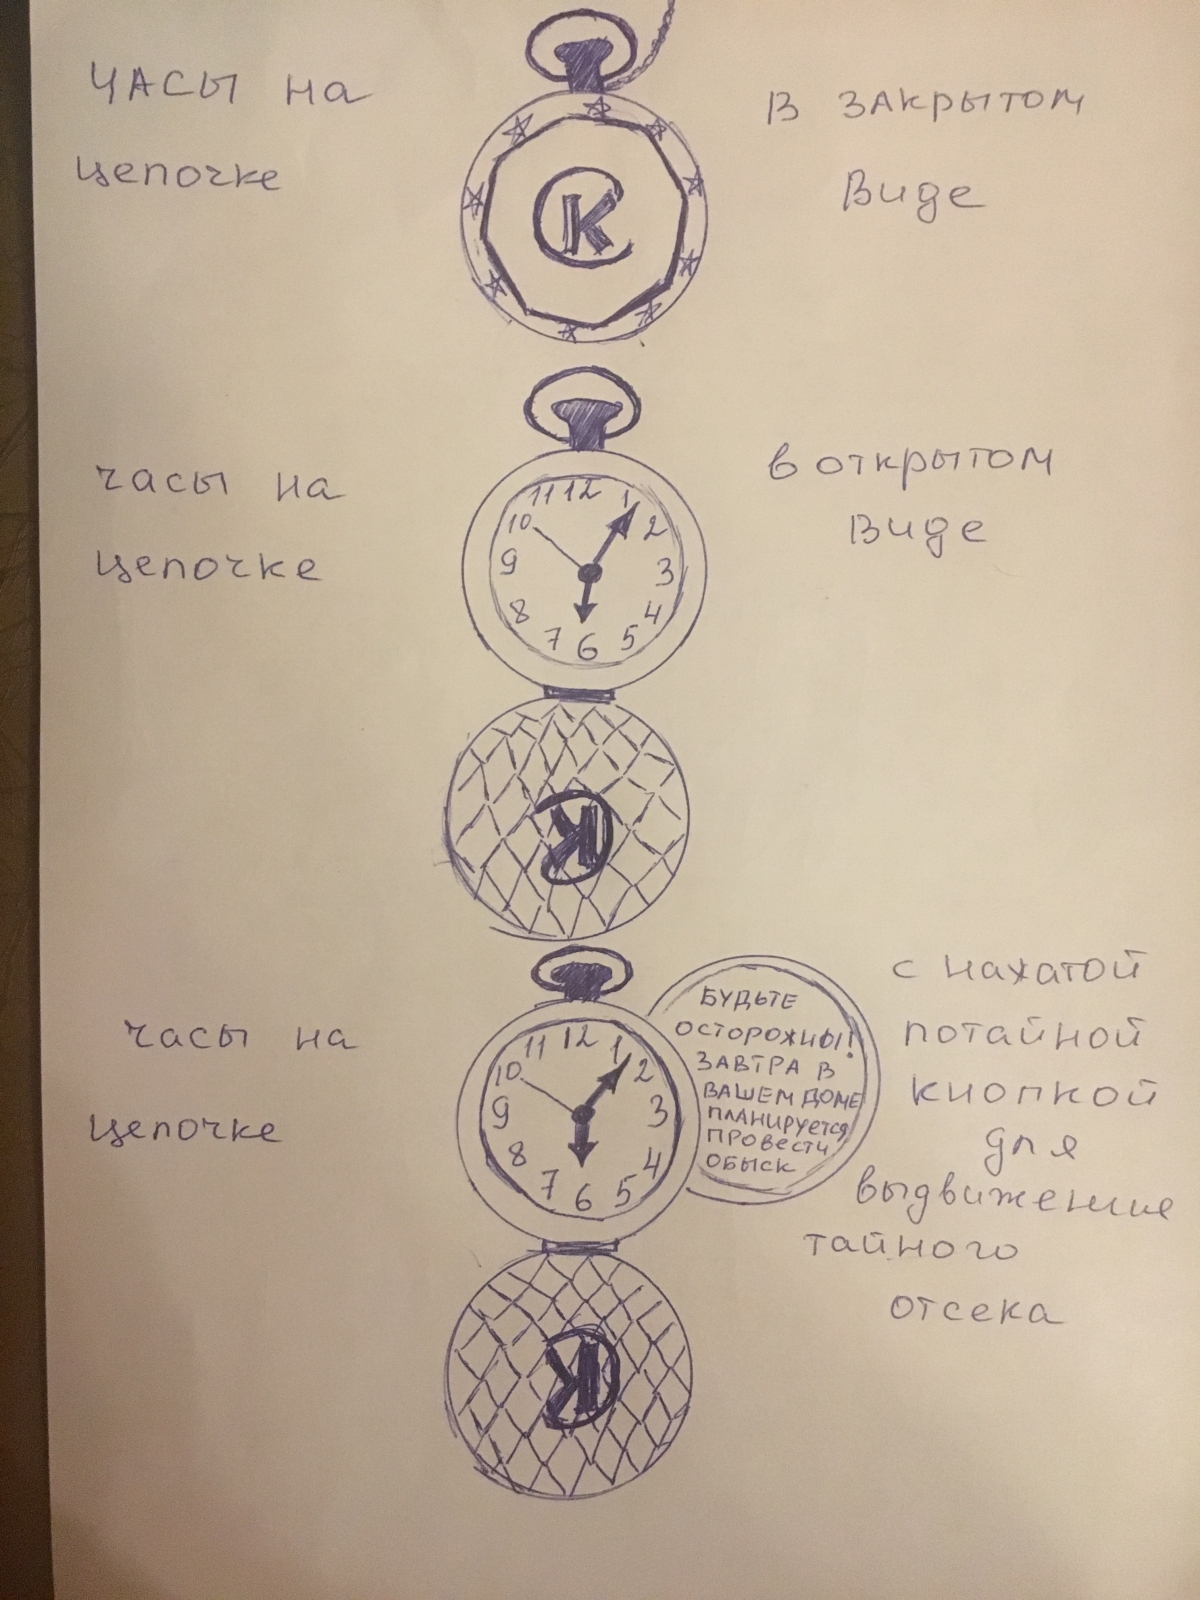 ЧАСЫ на
цепочке
В ЗАКРЫТОМ
Виде
СК
часы на
цепочке
в открытом
Виде
11 12 1
10 2
9 3
8 4
7 6 5
СК
часы на
цепочке
БУДЬТЕ
ОСТОРОЖНЫ!
ЗАВТРА В
ВАШЕМ ДОМЕ
ПЛАНИРУЕТСЯ
ПРОВЕСТИ
ОБЫСК
с нажатой
потайной
кнопкой
для
выдвижение
тайного
отсека
11 12 1
10 2
9 3
8 4
7 6 5
СК